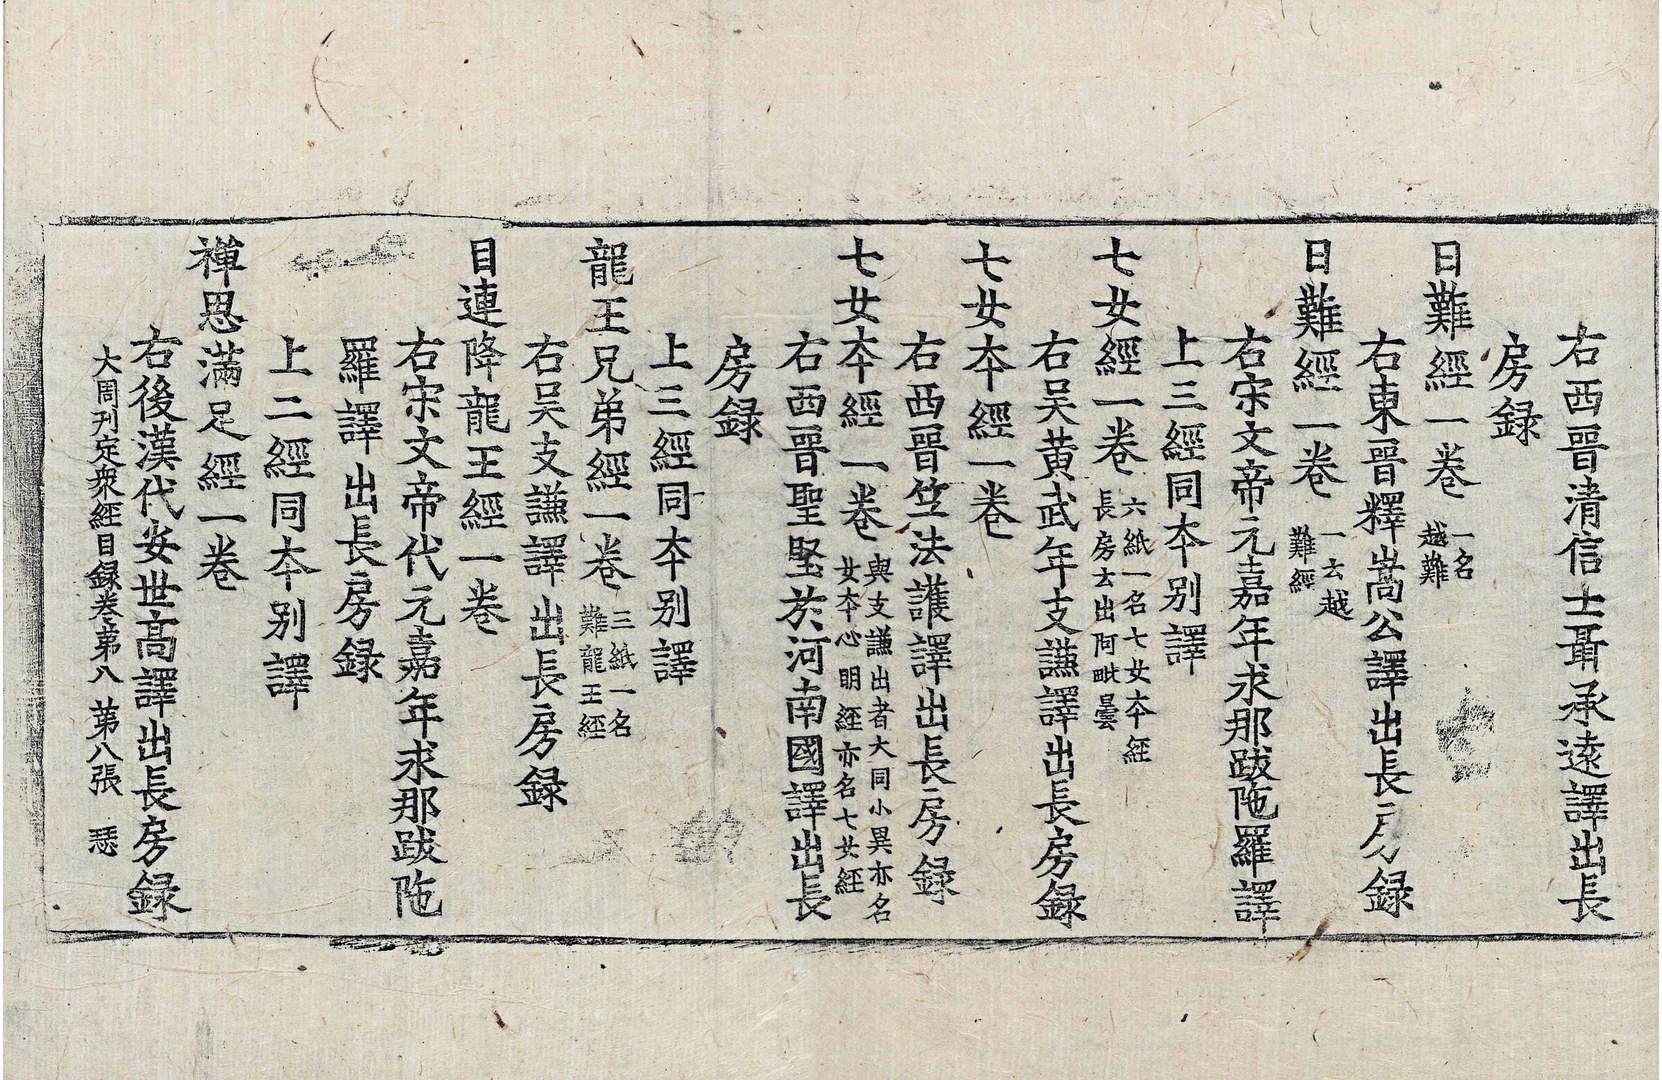 右西晉清信士聶承遠譯出長
房録
日難經一卷 一名越難
右東晉釋嵩公譯出長房録
日難經一卷 一云越難經
右宋文帝元嘉年求那跋陁羅譯
上三經同本别譯
七女經一卷 六紙一名七女本經長房云出阿毗曇
右吴黄武年支謙譯出長房録
七女本經一卷
右西晉竺法護譯出長房録
七女本經一卷 與支謙出者大同小異亦名女本心明經亦名七女經
右西晉聖堅於河南國譯出長
房録
上三經同本别譯
龍王兄弟經一卷 三紙一名難龍王經
右吴支謙譯出長房録
目連降龍王經一卷
右宋文帝代元嘉年求那跋陁
羅譯出長房録
上二經同本别譯
禪思滿足經一卷
右後漢代安世高譯出長房録
大周刊定衆經目録卷第八 第八張 瑟